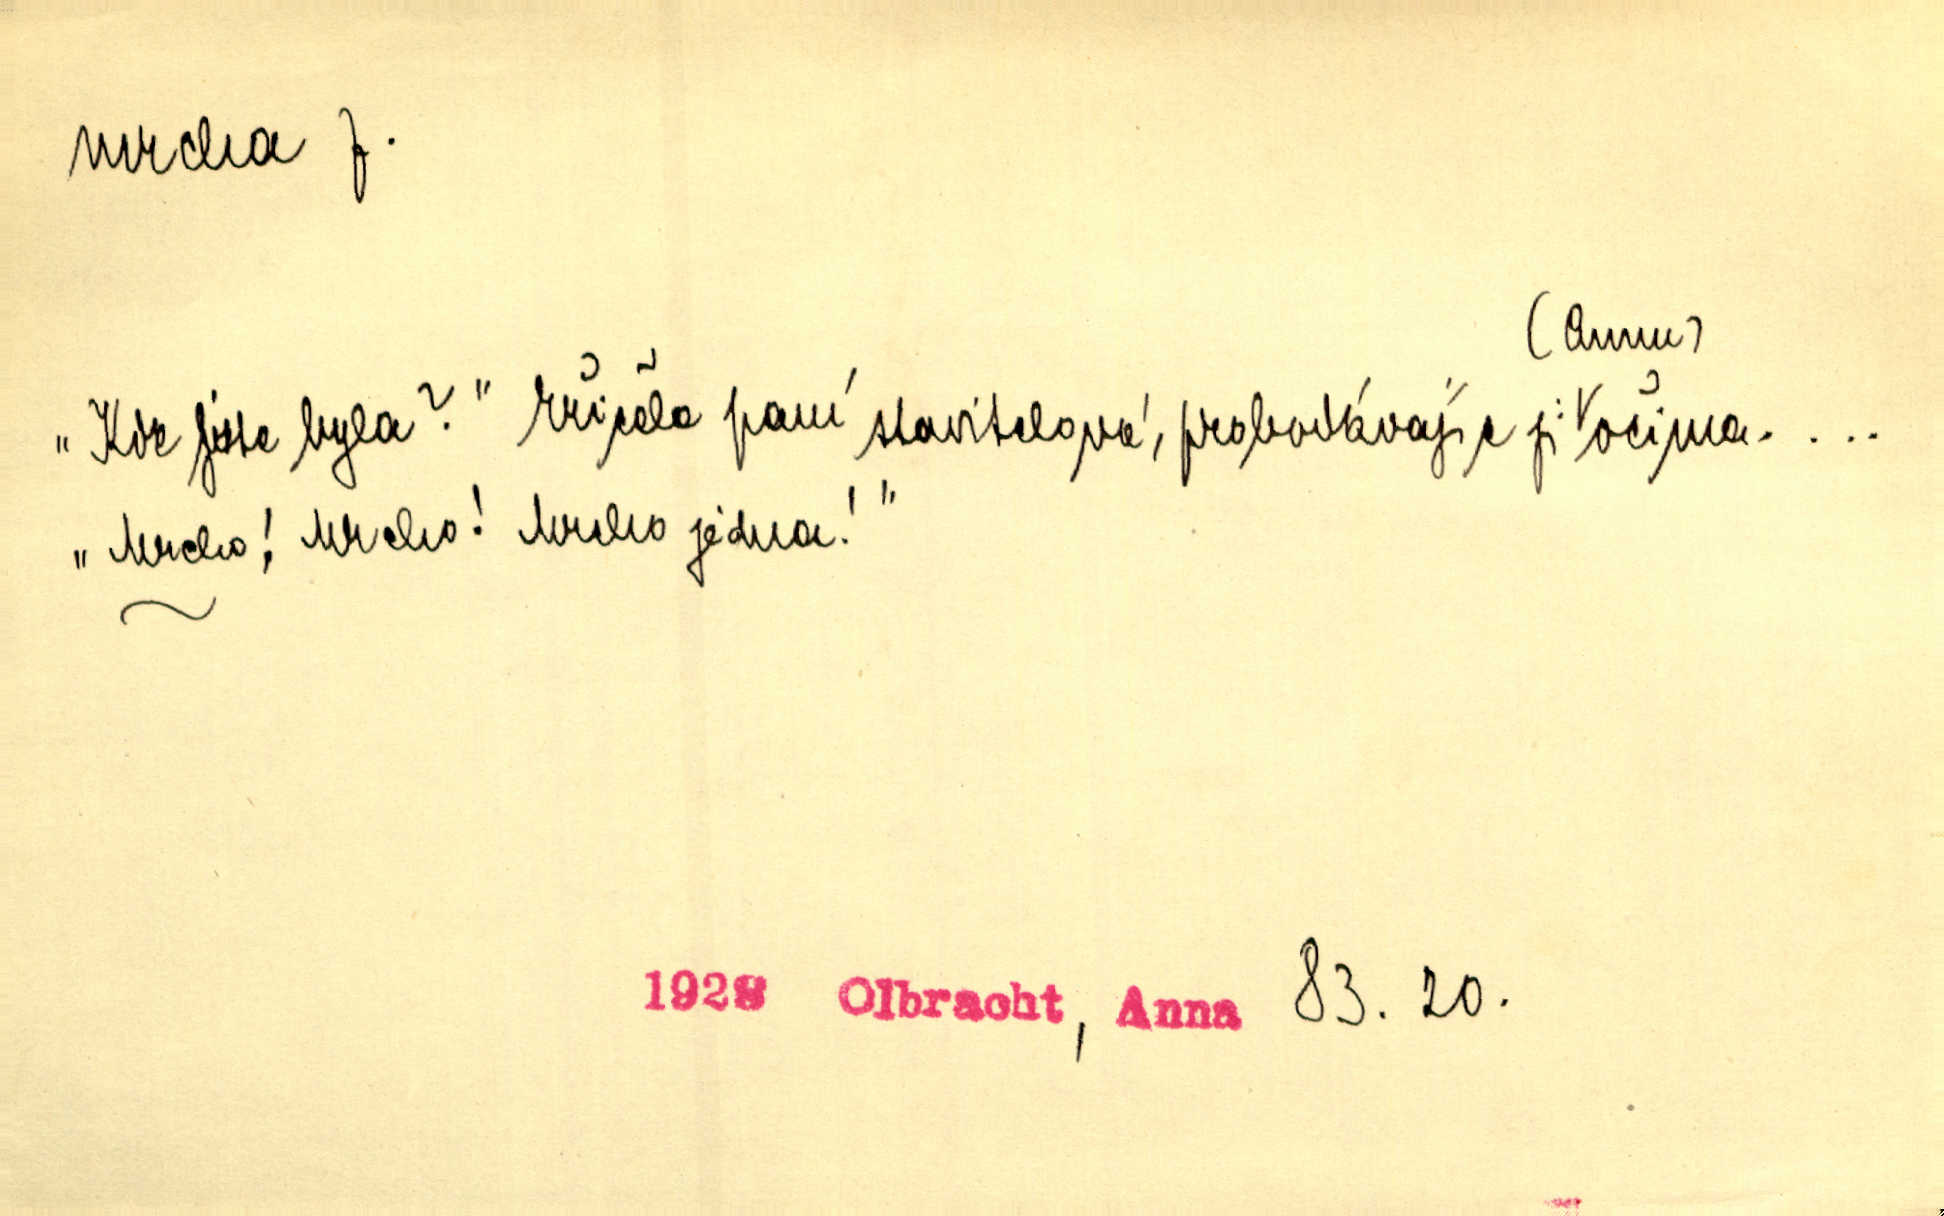 mrcha f.
(Annu)
„Kde jste byla?" křičela paní stavitelová, probodávajíc ji očima. . . .
„Mrcho! Mrcho! Mrcho jedna!"
1928 Olbracht, Anna 83. 20.